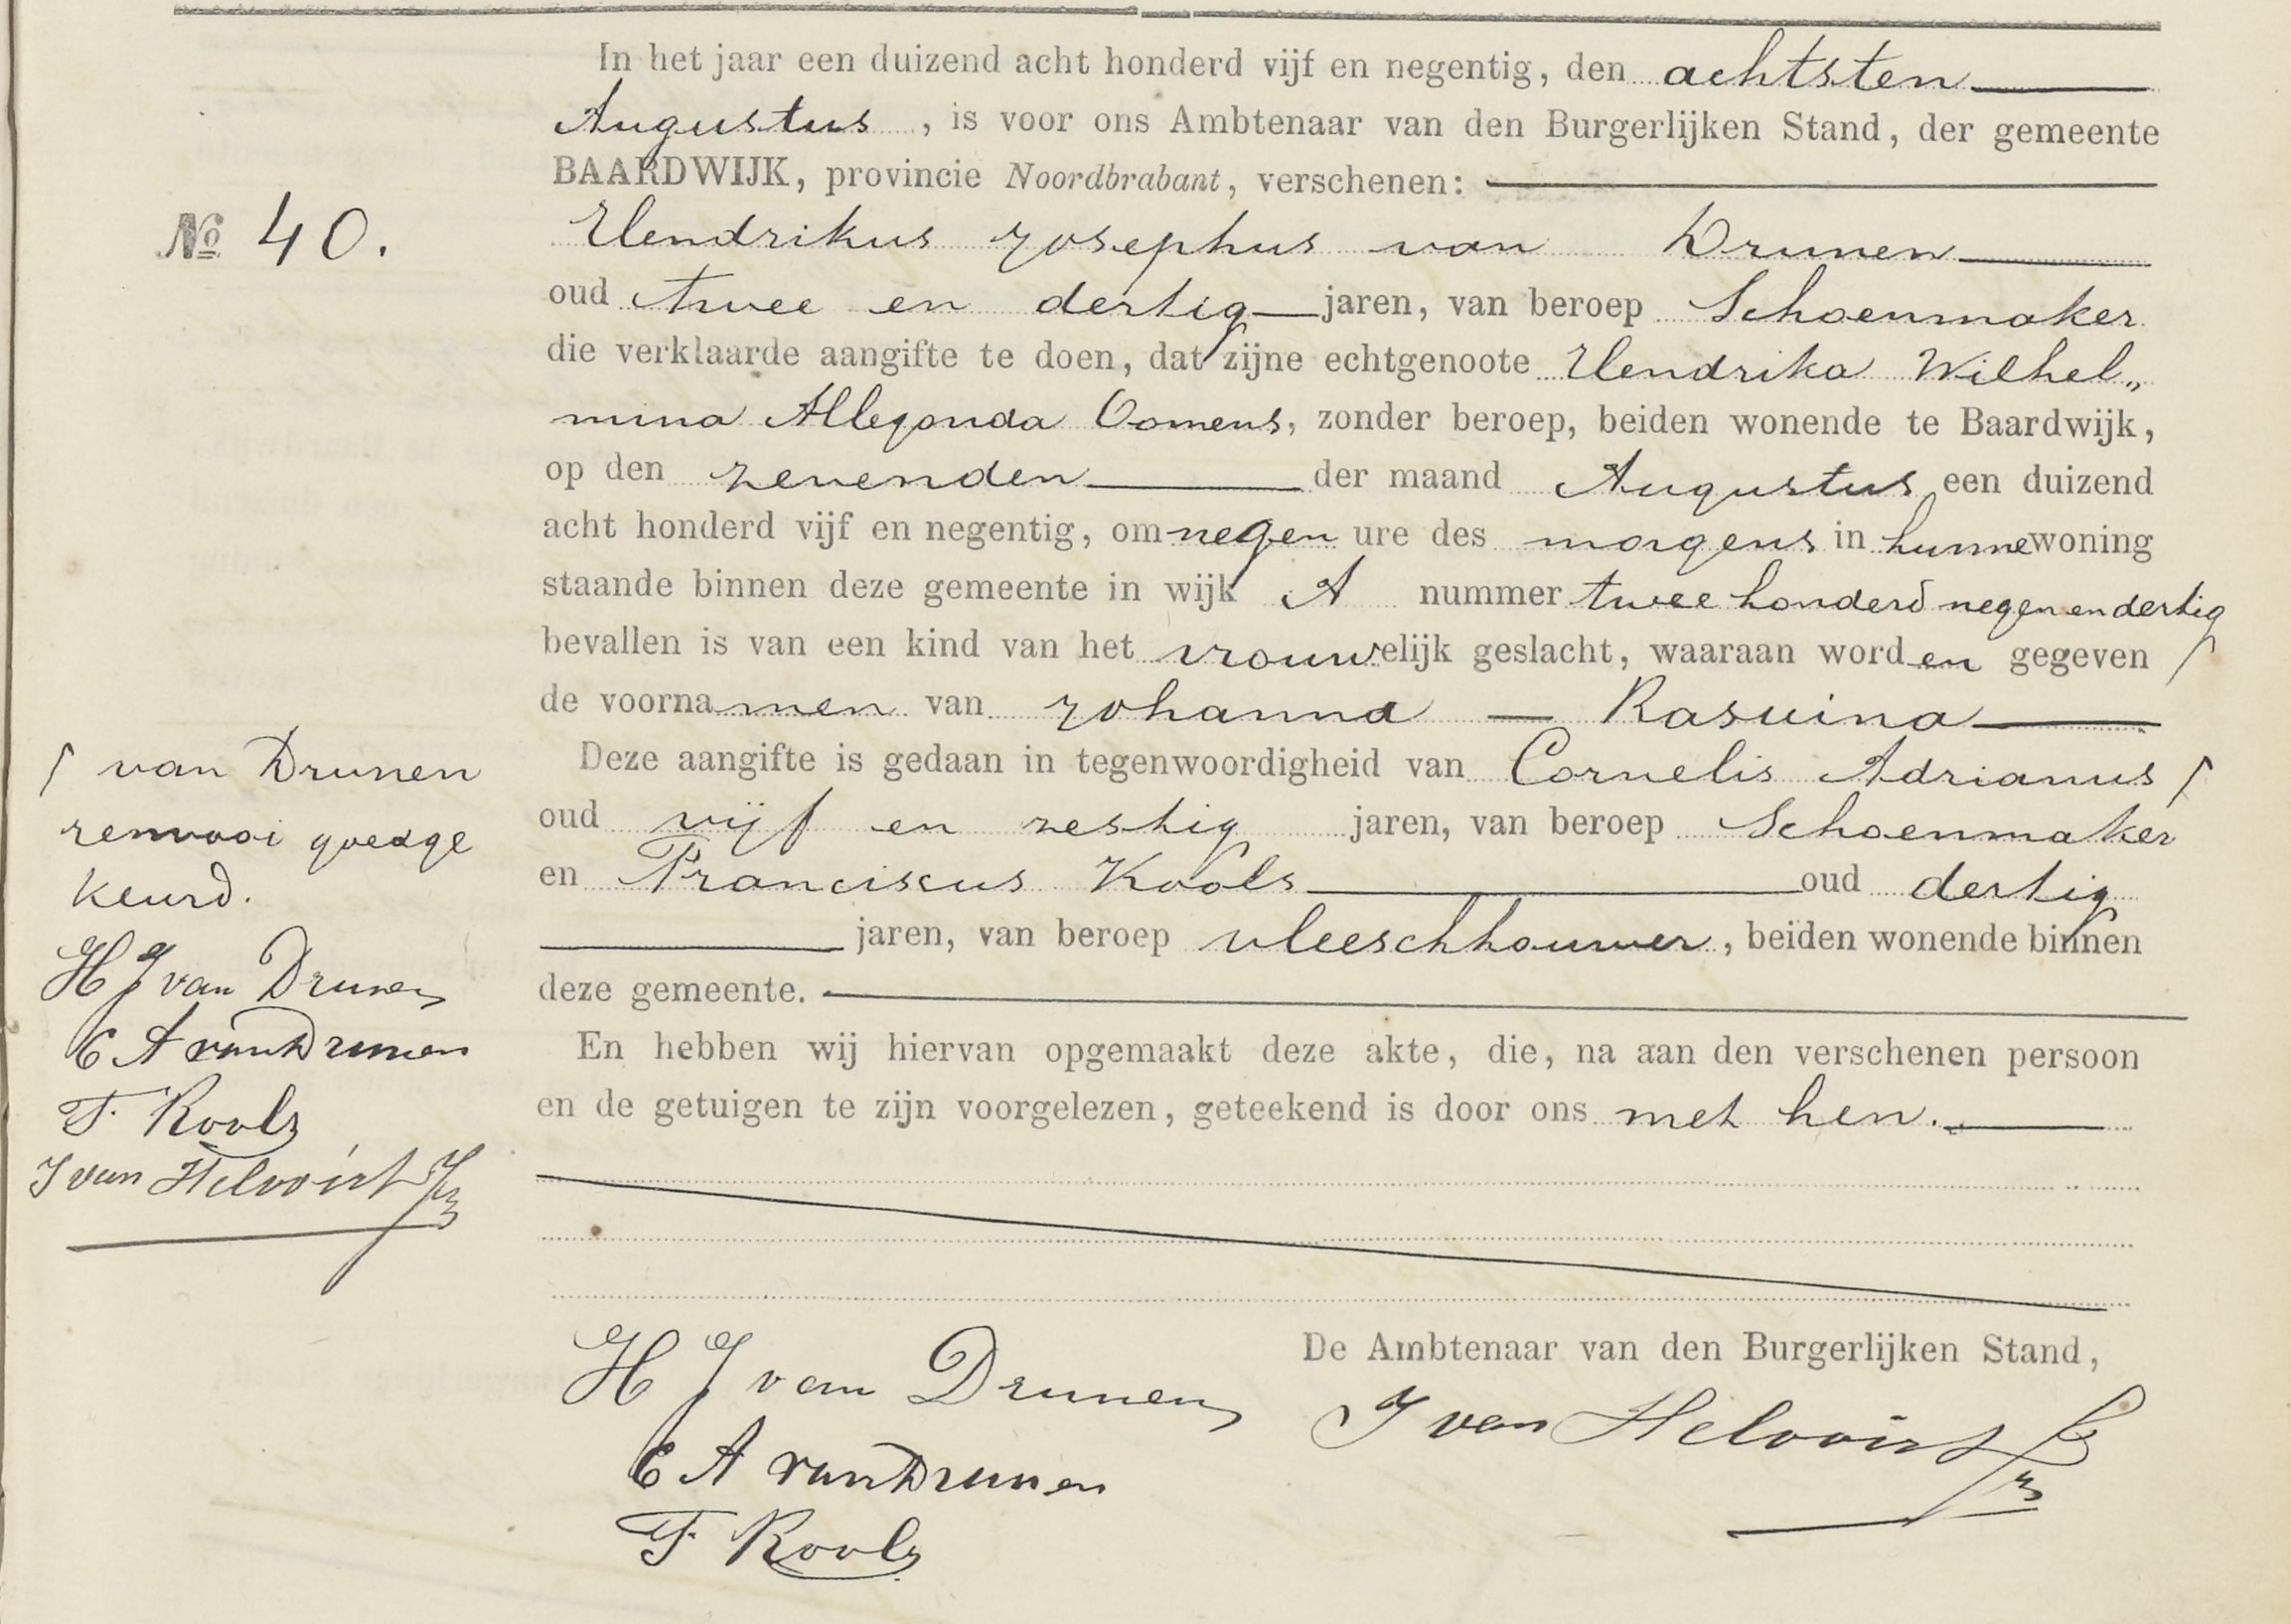 In het jaar een duizend acht honderd vijf en negentig, den achtsten
Augustus, is voor ons Ambtenaar van den Burgerlijken Stand, der gemeente
BAARDWIJK, provincie Noordbrabant, verschenen:
No 40.
Hendrikus Josephus van Drunen
oud twee en dertig jaren, van beroep Schoenmaker
die verklaarde aangifte te doen, dat zijne echtgenoote Hendrika Wilhel„
mina Allegonda Oomens, zonder beroep, beiden wonende te Baardwijk,
op den zevenden der maand Augustus een duizend
acht honderd vijf en negentig, om negen ure des morgens in hunne woning
staande binnen deze gemeente in wijk A nummer twee honderd negen en dertig
bevallen is van een kind van het vrouwelijk geslacht, waaraan worden gegeven
de voornamen van Johanna — Rasuina
Deze aangifte is gedaan in tegenwoordigheid van Cornelis Adrianus /
oud vijf en zestig jaren, van beroep Schoenmaker
en Franciscus Kools oud dertig
jaren, van beroep vleeschhouwer, beiden wonende binnen
deze gemeente.
En hebben wij hiervan opgemaakt deze akte, die, na aan den verschenen persoon
en de getuigen te zijn voorgelezen, geteekend is door ons met hen.
/ van Drunen
renvooi goedge
keurd.
H J van Drunen
C A van Drunen
F. Kools
J van Helvoirt Jz
H J van Drunen
C A van Drunen
F. Kools
De Ambtenaar van den Burgerlijken Stand,
J van Helvoirt Jz